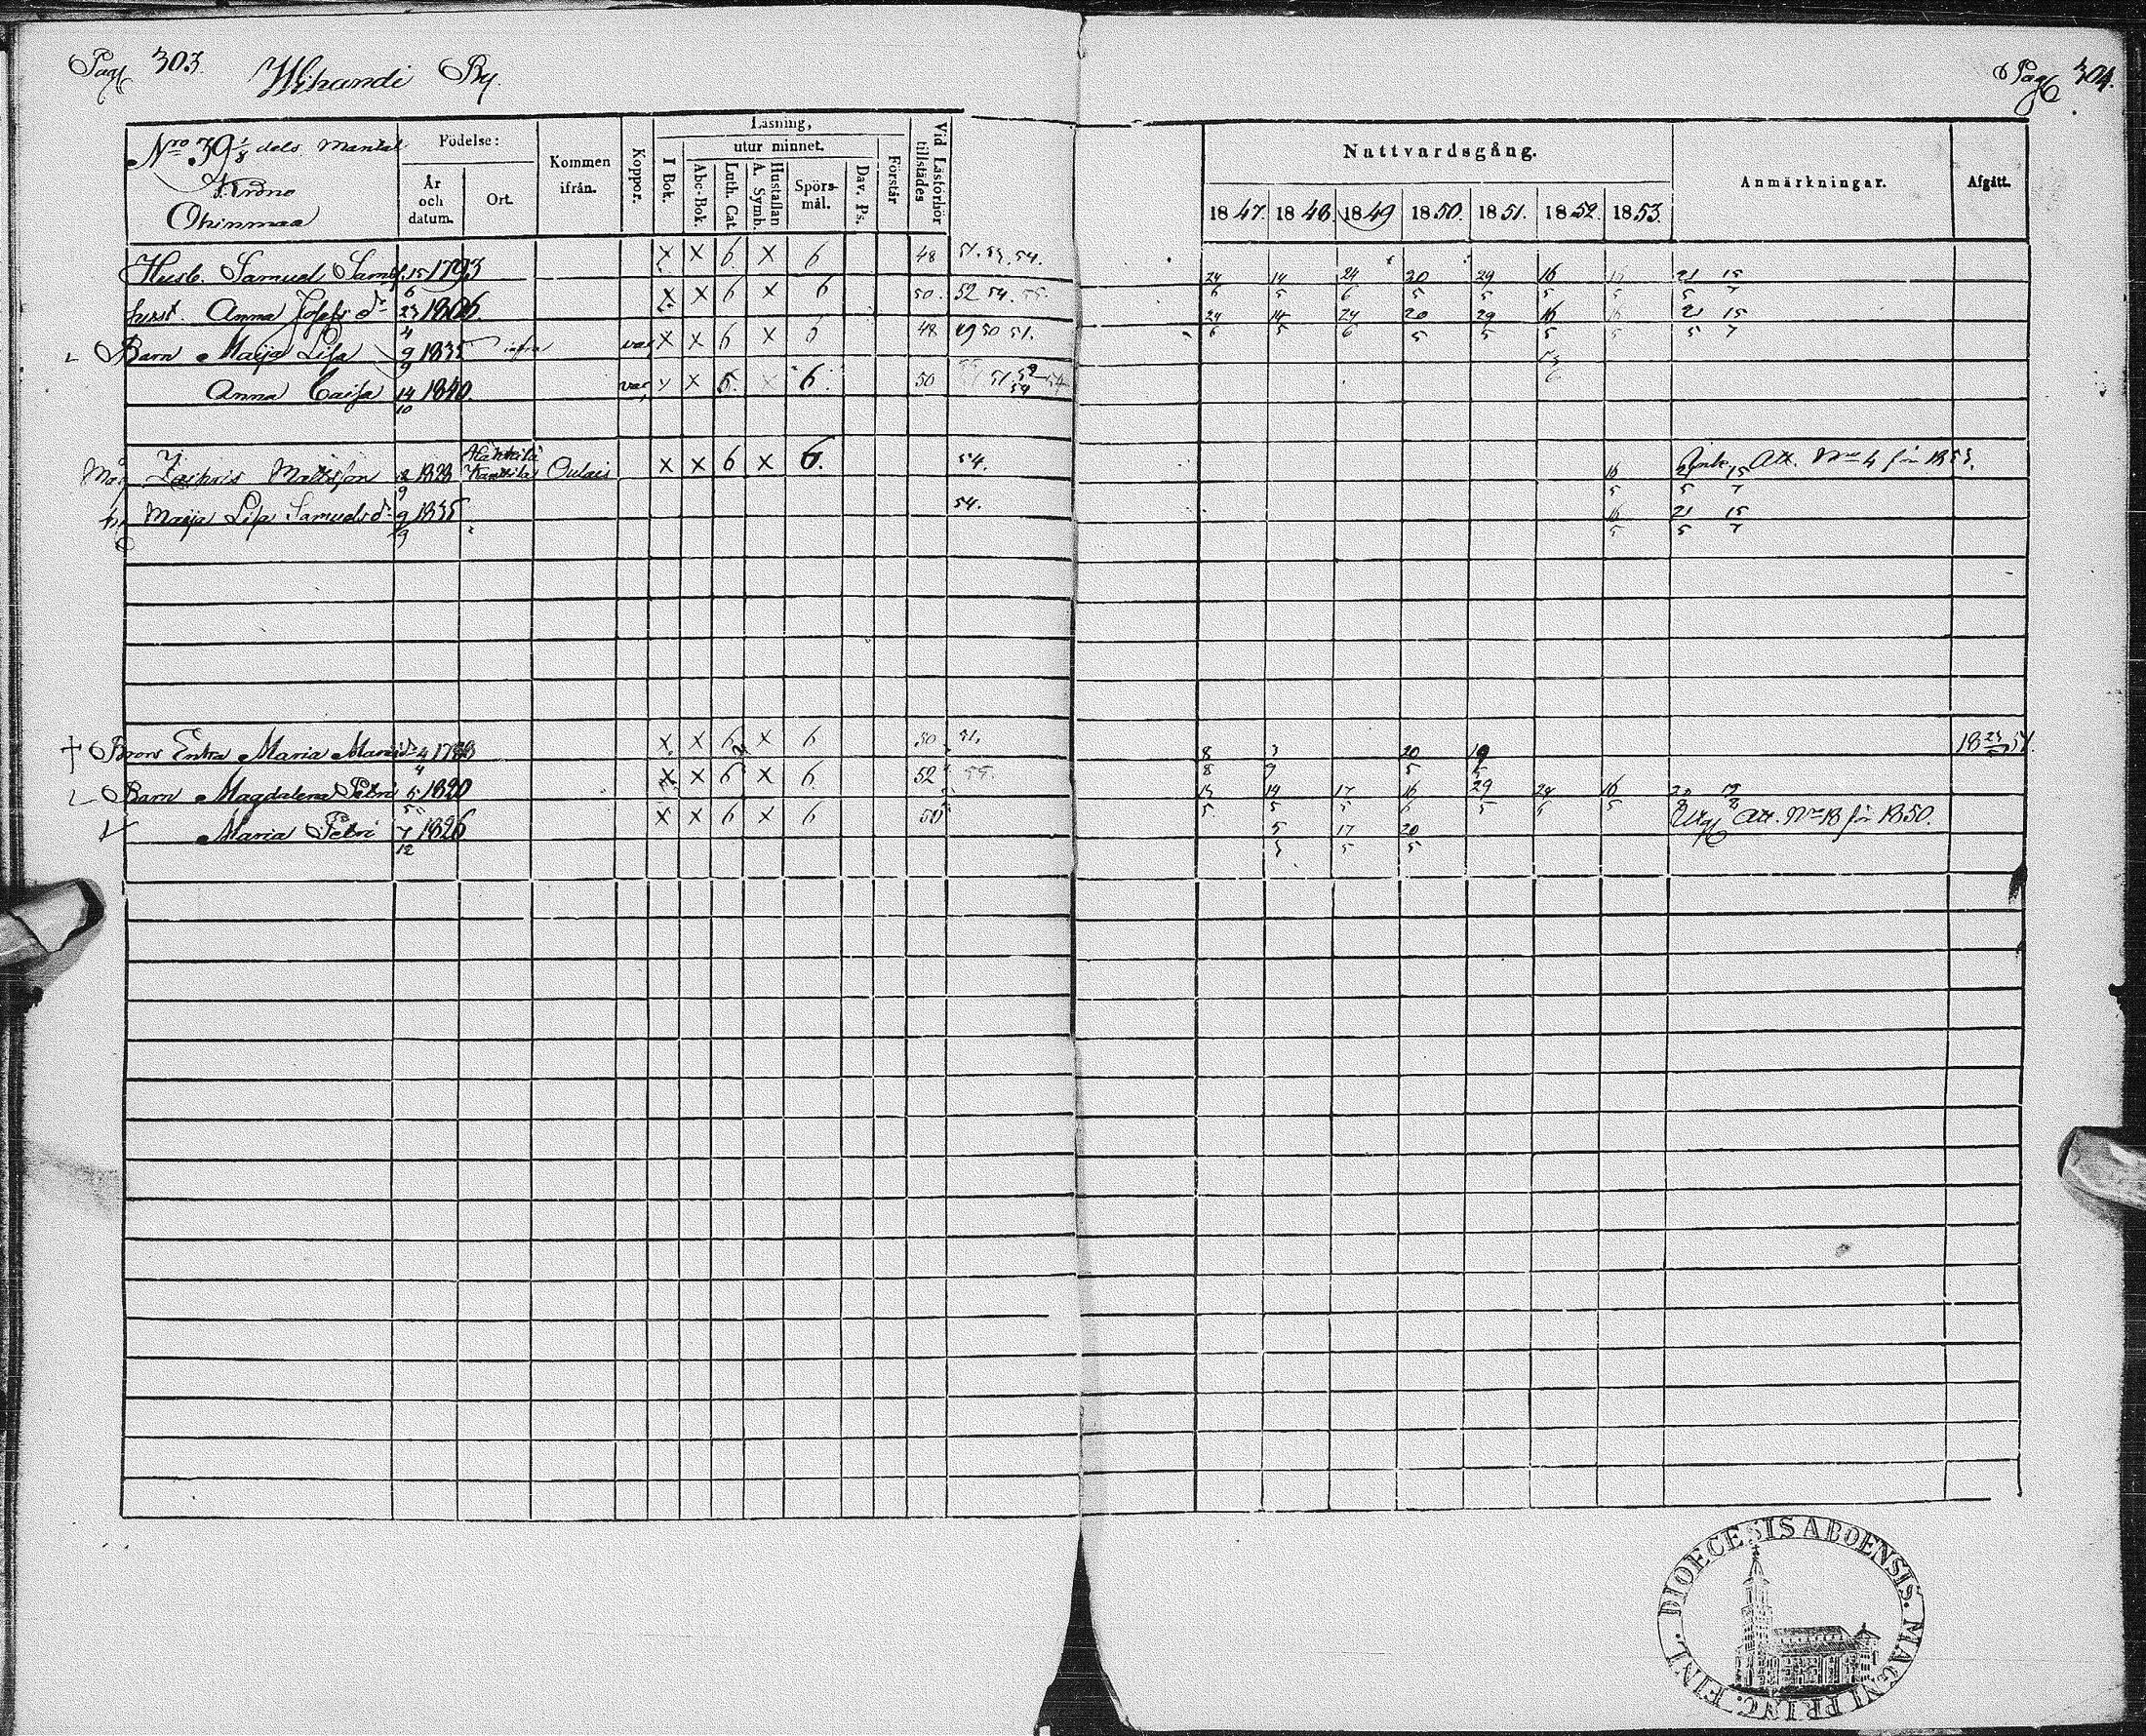 Pag. 303. Wihandi By.
Pag. 304.
Nro 39 1/8 dels Mantal
Krono
Ohinmaa
Födelse:
År och datum.
Ort.
Kommen ifrån.
Koppor.
Läsning,
I Bok.
utur minnet.
Abc-Bok.
Luth. Cat.
Hustaflan A. Symb.
Spörsmål.
Dav. Ps.
Förstår
Vid Läsförhör tillstädes
Nattvardsgång.
1847. 1848. 1849 1850. 1851. 1852. 1853.
Anmärkningar.
Afgått.
Husb. Samuel Sams. 15/6 1793 X X 6 X 6 48 51. 53. 54.
24/6 14/5 24/6 20/5 29/5 16/5 16/5 21/5 15/7
hust. Anna Josefs dr 23/4 1806 X X 6 X 6 50. 52 54. 55.
24/6 14/5 24/6 20/5 29/5 16/5 16/5 21/5 15/7
Barn Maija Lisa 9/9 1835 infra vac X X 6 X 6 48 49 50 51.
Anna Caisa 14/10 1840 vac X X 6. X 6. 50 51
Måg Zachris Mattsson 1828 Kankila Oulais X X 6 X 6. 54.
16/5 21/5 15/7 Att. Nro 4 för 1853.
h. Maija Lisa Samuels dr 9/9 1835 54.
16/5 21/5 15/7
† Brors Enka Maria 4/4 X X 6 X 6 50 51.
8/8 3/9 20/5 18 23/5 51.
Barn Magdalena Petri 5/5 1820 X X 6 X 6 52 55.
14/5 17/5 16/6 29/5 24/6 16/5
Maria Petri 7/12 1826 X X 6 X 6 50
5/5 17/5 20/5 Utg. Att. Nro 18 för 1850.
DIOECESIS ABOENSIS. MAGNI PRINC. FINL.